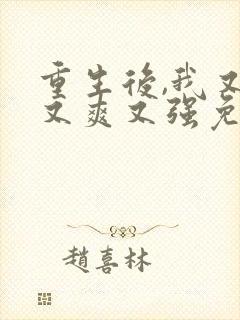 重生後,我又
又爽又强免
趙喜林